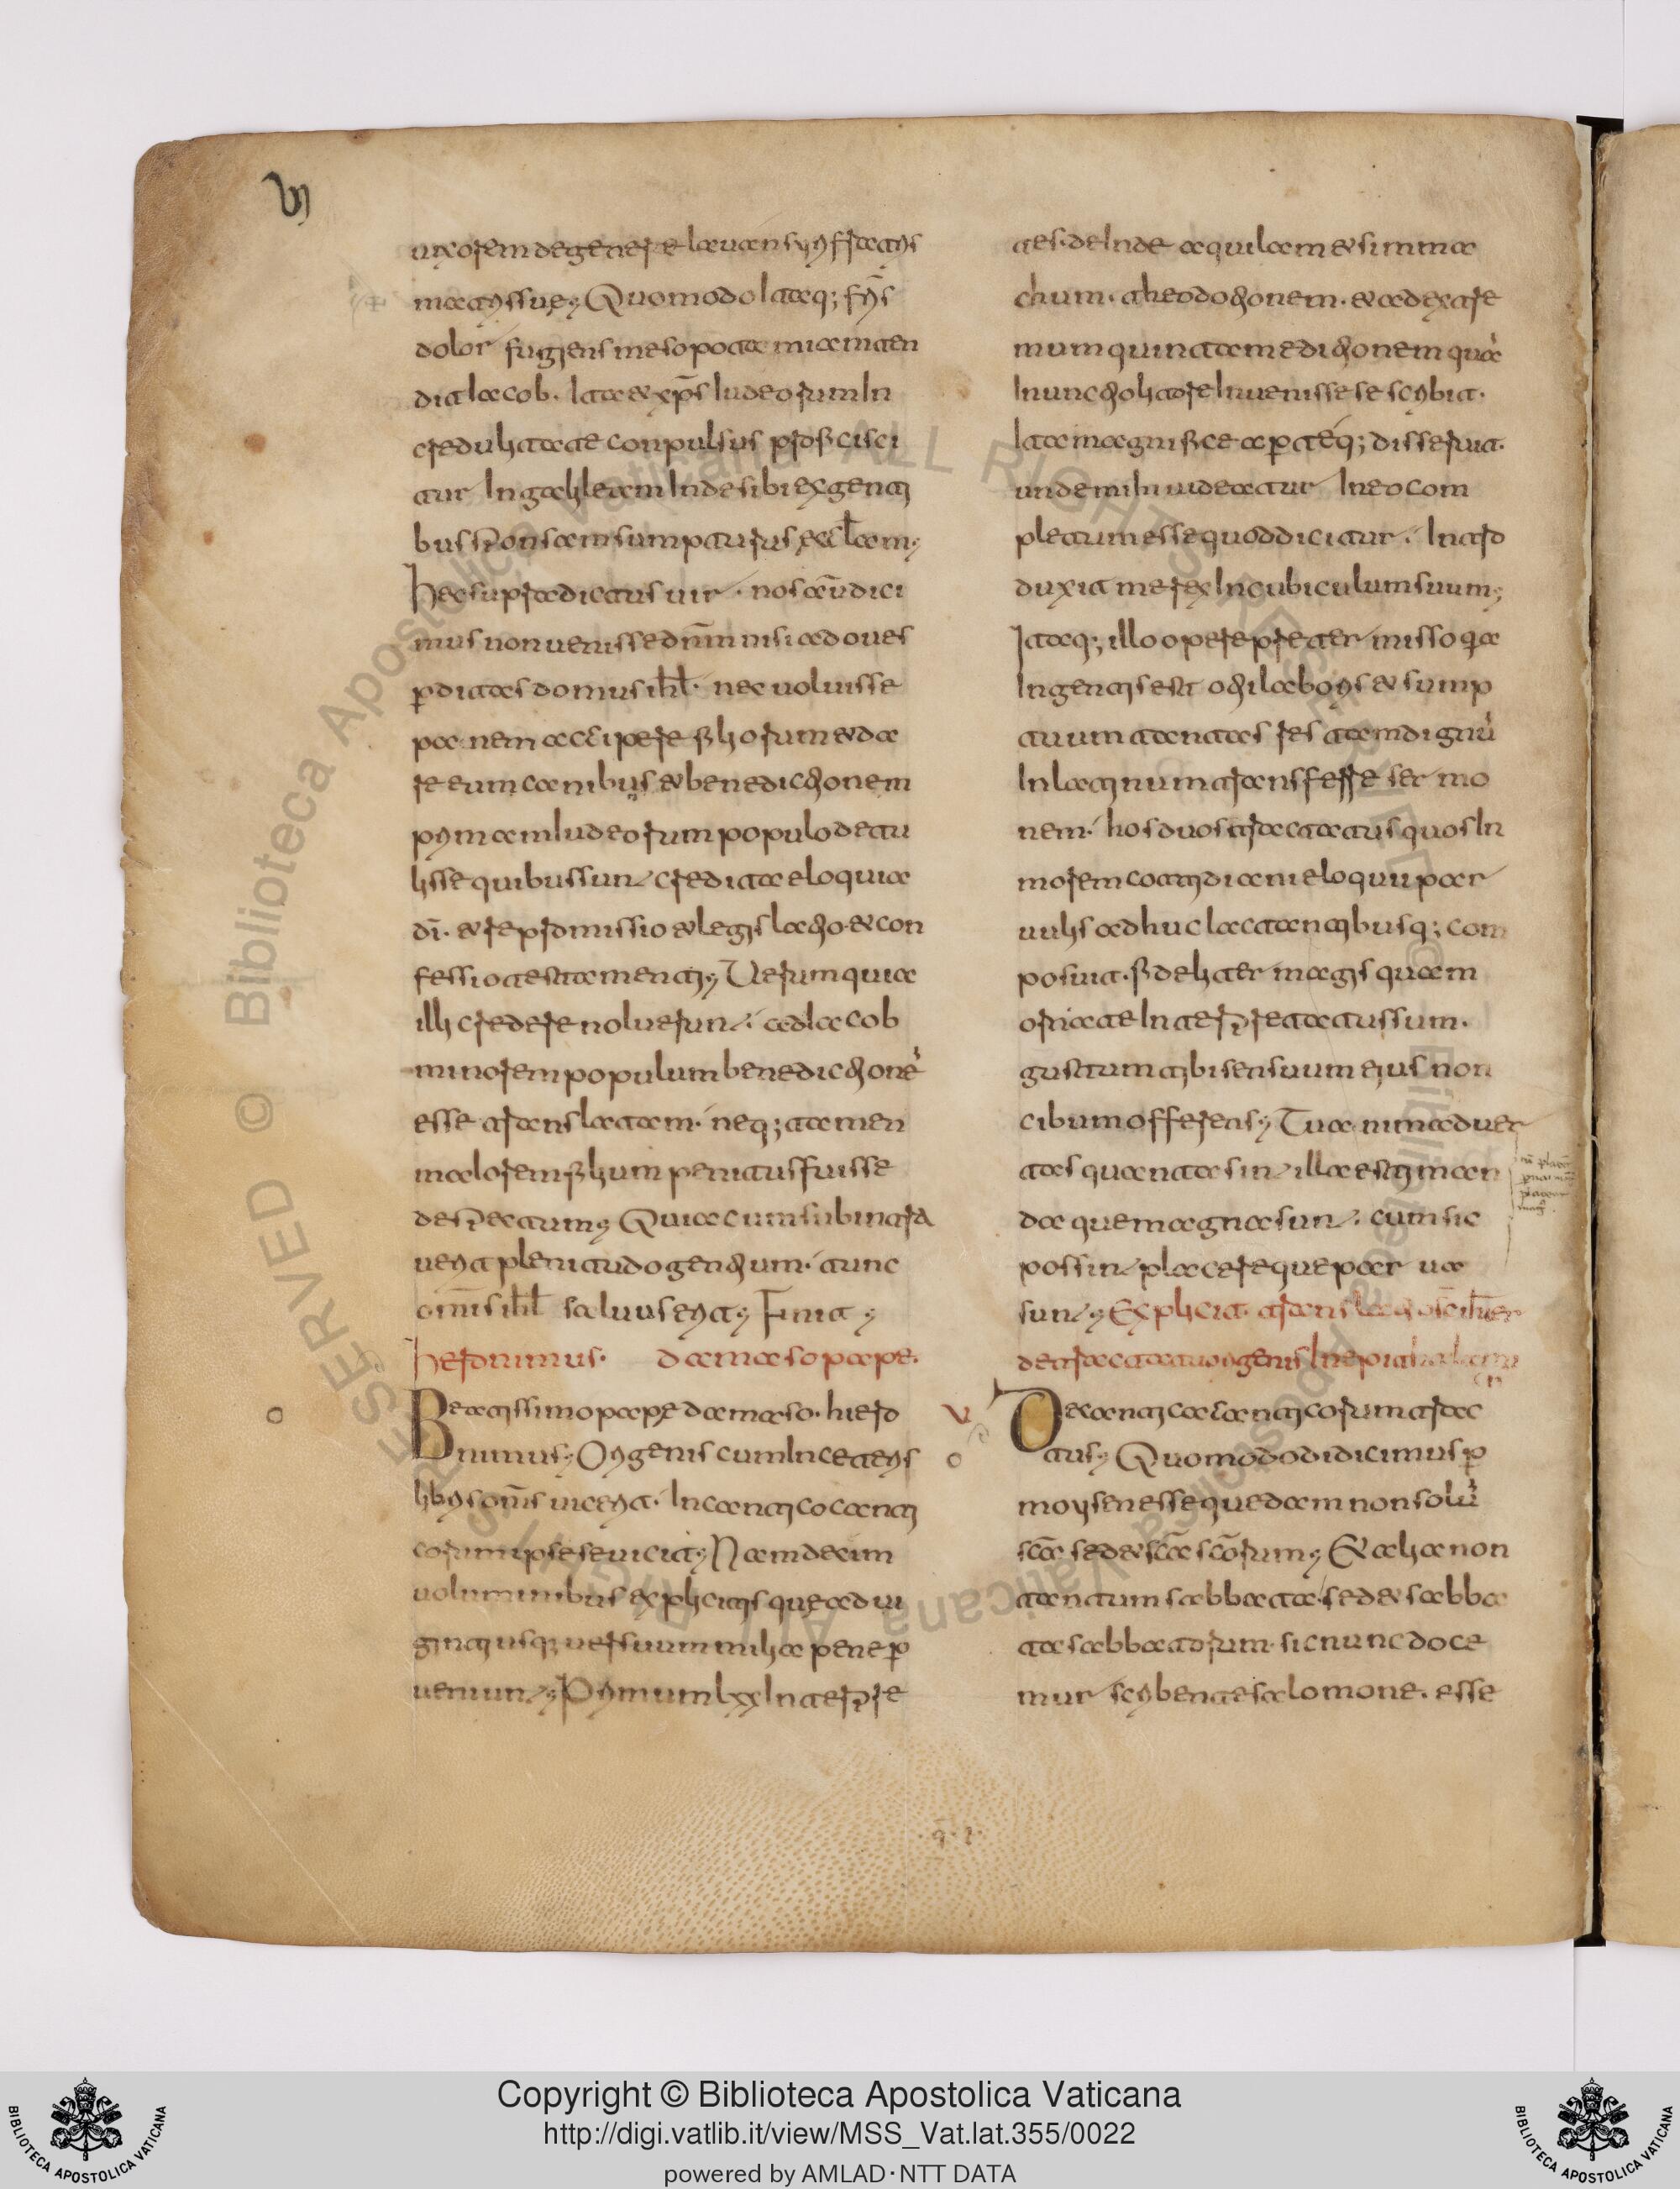 VI
uxorem de genere laban syri fratris
matris sue; Quomodo Itaq; frīs
dolor fugiens mesopotamiam ten
dit Iacob. Ita et xp̄s Iudeorum In
credulitate conpulsus proficisci
tur In galileam Inde sibi ex genti
bus sponsam sumpturus eccl̄am;
Hec supradictus uir. nos aūdici
mus non uenisse dn̄m nisi ad oues
p̄ditas domus ihl̄. nec uoluisse
panem accipere filiorum et da
re eum canibus et benedictionem
primam Iudeorum populo detu
lisse quibus sunt credita eloquia
dī. et repromissio et legis latio. et con
fessio testamenti; Uerum quia
illi credere noluerunt. ad Iacob
minorem populum benedictionē
esse translatam. neq; tamen
maiorem filium penitus fuisse
despectum; Quia cum subintra
uerit plenitudo gentium. tunc
om̄is ihl̄ saluus erit; Finit;
Heronimus. damaso pape.
Beatissimo pape damaso. hiero
nimus; Origenis cum In ceteris
libris om̄s uicerit. In canticocanti
corum ipse se uicit; Nam decim
uoluminibus explicitis que ad ui
ginti usq; uersuum milia pene p̄
ueniunt; Primum lxx Interpre
tes. deInde aquilam et simma
chum. theodotionem. et ad extre
mum quintam editionem quā
In nunc tiolitore Inuenisse se scribit.
Ita magnifice ap̄teq; disseruit.
unde mihi uideatur In eo com
pletum esse quod dicitur. Intro
duxit me rex In cubiculum suum;
Itaq; illo opere preter misso q̄a
Ingentis est otii laboris et sump
tuum tantas res tam dignū
In latinum transferre ser mo
nem. hos duos tractatus quos In
morem cottidiani eloquii par
uulis adhuc lactantibusq; com
posuit. fideliter magis quam
ornate Interpretatus sum.
gustum tibi sensuum eius non
cibum offerens; Tu animaduer
tas quanta sint illa estiman
da que magna sunt. cum sic
possint placere que par ua
sunt; Explicit. translatio
V
O
O
De canticacanticorum trac
tus; Quomodo didicimus p̄
moysen esse quedam non solū
sc̄a sed et sc̄a sc̄orum; Et alia non
tantum sabbata. sed et sabba
ta sabbatorum. sic nunc doce
mur scribente salomone. esse
Copyright © Biblioteca Apostolica Vaticana
http://digi.vatlib.it/view/MSS_Vat.lat.355/0022
powered by AMLAD·NTT DATA
BIBLIOTECA APOSTOLICA VATICANA
BIBLIOTECA APOSTOLICA VATICANA